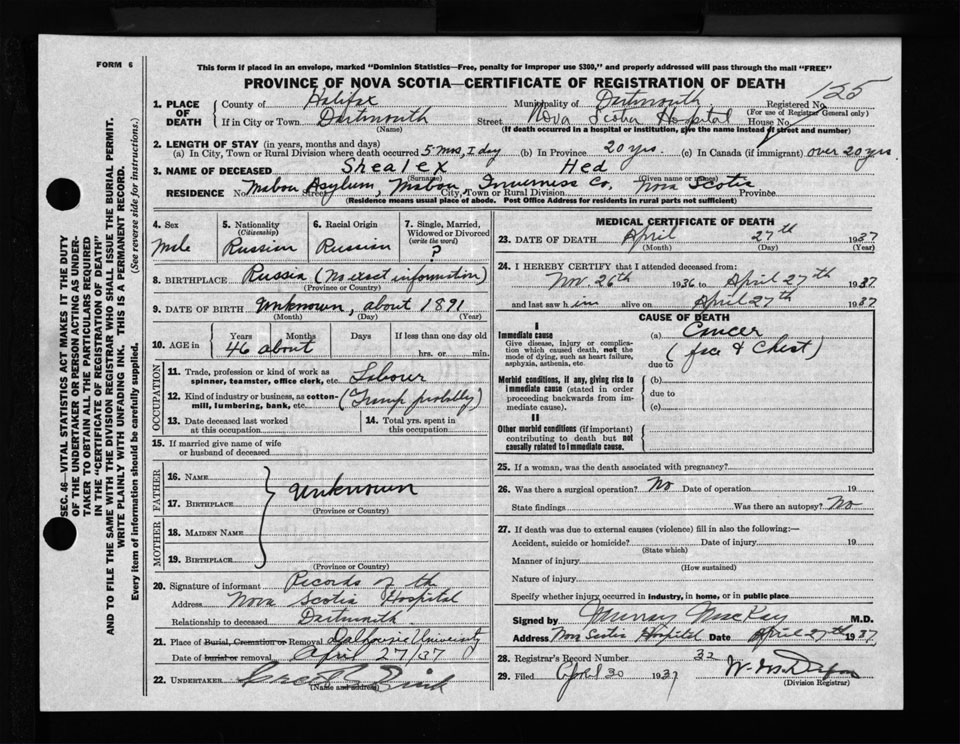 FORM 6
This form if placed in an envelope, marked "Dominion Statistics—Free, penalty for improper use $300," and properly addressed will pass through the mail "FREE"
PROVINCE OF NOVA SCOTIA—CERTIFICATE OF REGISTRATION OF DEATH
125
1. PLACE OF DEATH { County of Halifax Municipality of Dartmouth Registered No.
(For use of Registrar General only)
If in City or Town Dartmouth Street Nova Scotia Hospital House No.
(Name) (If death occurred in a hospital or institution, give the name instead of street and number)
2. LENGTH OF STAY (in years, months and days)
(a) In City, Town or Rural Division where death occurred 5 mos, 1 day (b) In Province 20 yrs. (c) In Canada (if immigrant) over 20 yrs.
3. NAME OF DECEASED Shealex Hed
(Surname) (Given name or names)
RESIDENCE No. Mabou Asylum, Mabou Street, City, Town or Rural Division Inverness Co, Nova Scotia Province
(Residence means usual place of abode. Post Office Address for residents in rural parts not sufficient)
4. Sex
Male
5. Nationality
(Citizenship)
Russian
6. Racial Origin
Russian
7. Single, Married, Widowed or Divorced
(write the word)
?
8. BIRTHPLACE Russia (No exact information)
(Province or Country)
9. DATE OF BIRTH Unknown, about 1891
(Month) (Day) (Year)
10. AGE in { Years Months Days If less than one day old
46 about hrs. or min.
OCCUPATION
11. Trade, profession or kind of work as spinner, teamster, office clerk, etc. Labour
12. Kind of industry or business, as cotton-mill, lumbering, bank, etc. (Tramp probably)
13. Date deceased last worked at this occupation
14. Total yrs. spent in this occupation
15. If married give name of wife or husband of deceased
FATHER
16. NAME
17. BIRTHPLACE Unknown
(Province or Country)
MOTHER
18. MAIDEN NAME
19. BIRTHPLACE
(Province or Country)
20. Signature of informant Records of the
Address Nova Scotia Hospital
Relationship to deceased Dartmouth
21. Place of Burial, Cremation or Removal Dalhousie University
Date of burial or removal April 27/37
22. UNDERTAKER
(Name and address)
MEDICAL CERTIFICATE OF DEATH
23. DATE OF DEATH April 27th 1937
(Month) (Day) (Year)
24. I HEREBY CERTIFY that I attended deceased from:
Nov. 26th 1936 to April 27th 1937
and last saw him alive on April 27th 1937
CAUSE OF DEATH
I
Immediate cause
Give disease, injury or complication which caused death, not the mode of dying, such as heart failure, asphyxia, asthenia, etc.
(a) Cancer
(face & Chest)
due to
Morbid conditions, if any, giving rise to immediate cause (stated in order proceeding backwards from immediate cause).
(b)
due to
(c)
II
Other morbid conditions (if important) contributing to death but not causally related to immediate cause.
25. If a woman, was the death associated with pregnancy?
26. Was there a surgical operation? No Date of operation 19
State findings Was there an autopsy? No
27. If death was due to external causes (violence) fill in also the following:—
Accident, suicide or homicide? Date of injury 19
(State which)
Manner of injury
(How sustained)
Nature of injury
Specify whether injury occurred in industry, in home, or in public place
Signed by Murray MacKay M.D.
Address Nova Scotia Hospital Date April 27th 1937
28. Registrar's Record Number 32
29. Filed April 30 1937
(Division Registrar)
SEC. 46—VITAL STATISTICS ACT MAKES IT THE DUTY
OF THE UNDERTAKER OR PERSON ACTING AS UNDER-
TAKER TO OBTAIN ALL THE PARTICULARS REQUIRED
IN THE "CERTIFICATE OF REGISTRATION OF DEATH"
AND TO FILE THE SAME WITH THE DIVISION REGISTRAR WHO SHALL ISSUE THE BURIAL PERMIT.
WRITE PLAINLY WITH UNFADING INK. THIS IS A PERMANENT RECORD.
Every item of information should be carefully supplied. (See reverse side for instructions.)